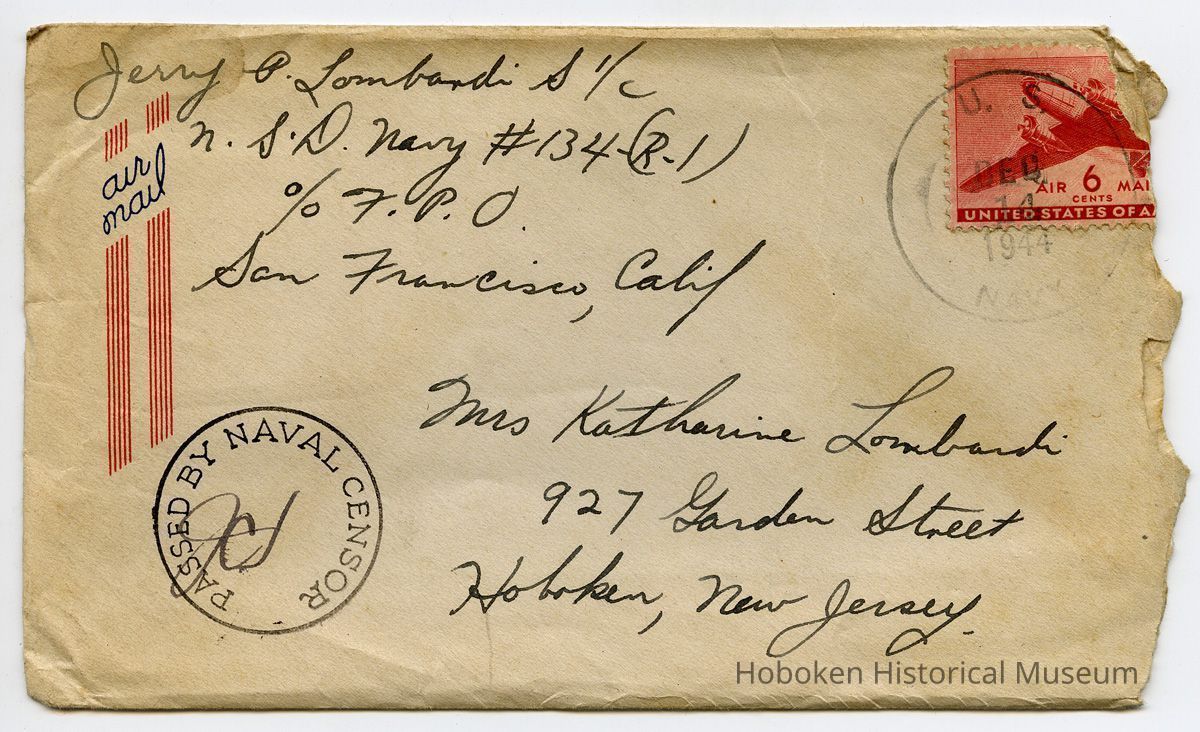 Jerry P. Lombardi S 1/c
N. S. D. Navy #134-(R-1)
% F. P. O.
San Francisco, Calif
air
mail
U. S.
DEC.
14
1944
NAVY
AIR 6 MAI
CENTS
UNITED STATES OF A
PASSED BY NAVAL CENSOR
Mrs Katharine Lombardi
927 Garden Street
Hoboken, New Jersey.
Hoboken Historical Museum